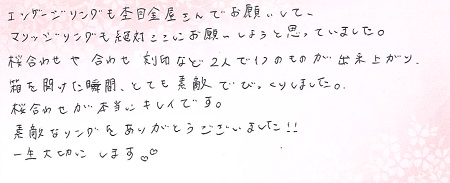 エンゲージリングも杢目金屋さんでお願いして、
マリッジリングも絶対ここにお願いしようと思っていました。
桜合わせや合わせ刻印など2人で1つのものが出来上がり、
箱を開けた瞬間、とても素敵でびっくりしました。
桜合わせが本当にキレイです。
素敵なリングをありがとうございました!!
一生大切にします♡♡